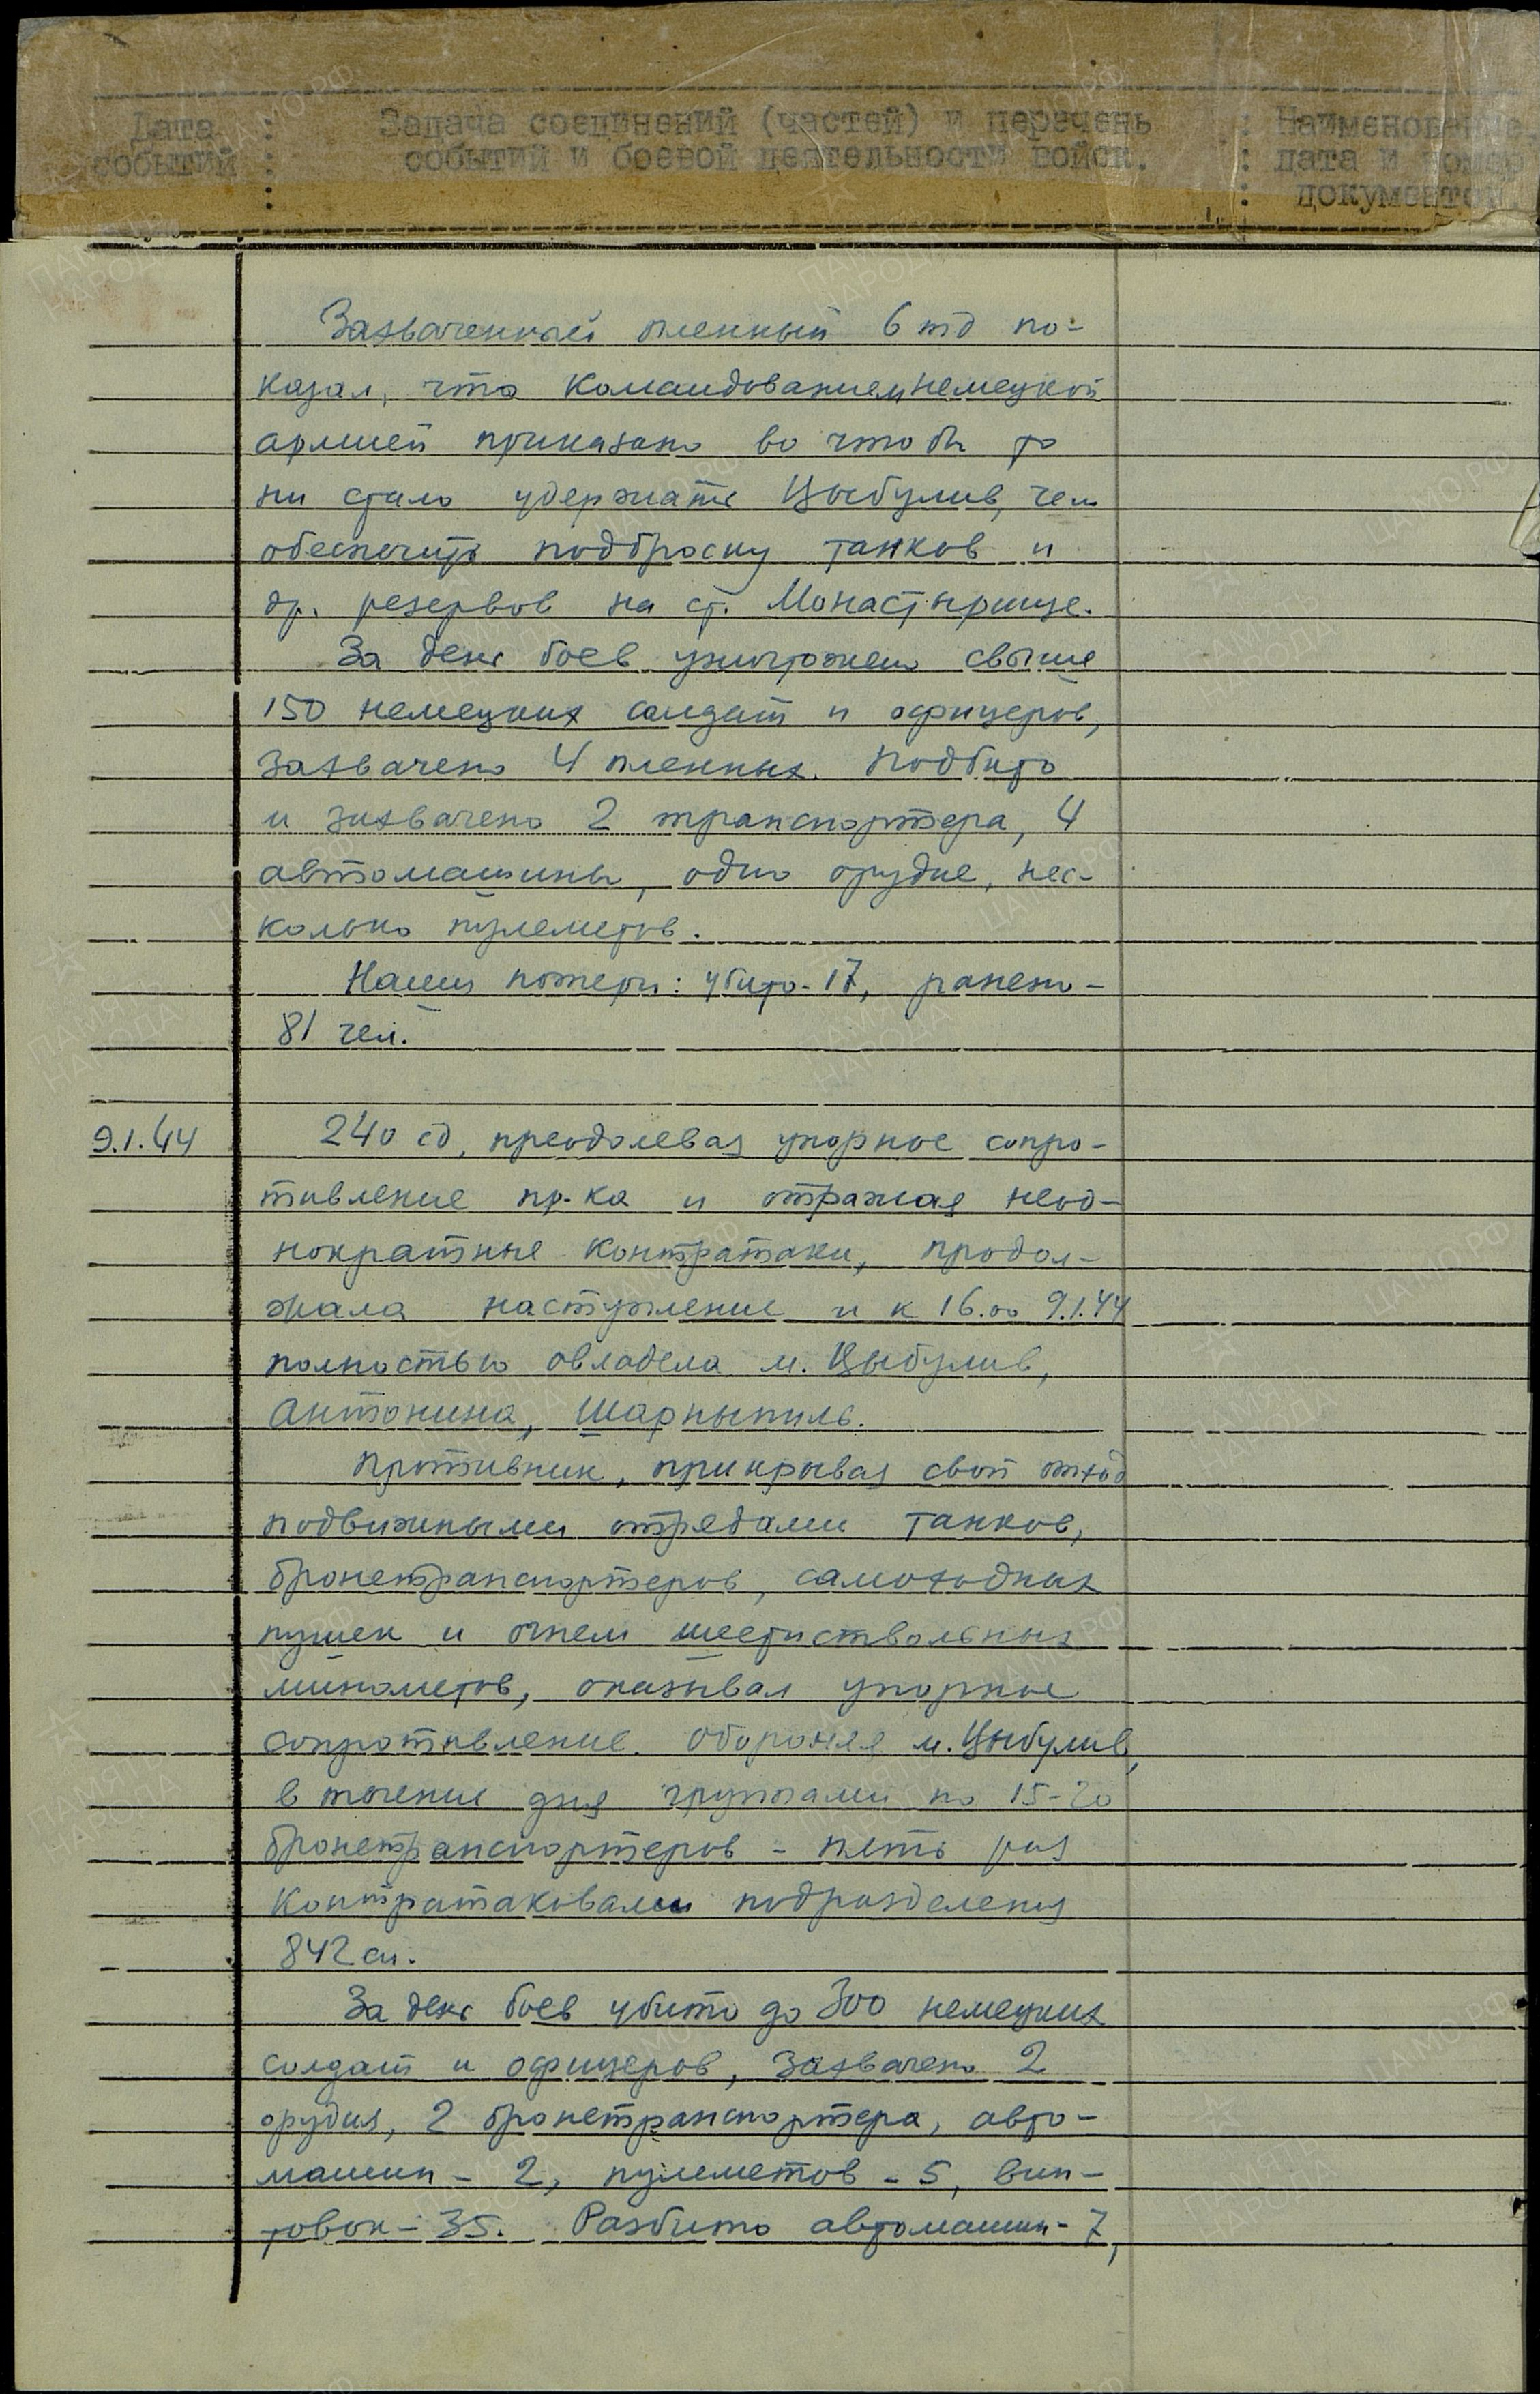 Дата : Задача соединений (частей) и перечень : Наименование,
событий : событий и боевой деятельности войск. : дата и номер
: : документов.
Захваченный пленный 6 тд по-
казал, что командованием немецкой
армией приказано во что бы то
ни стало удержать Цыбулив, чем
обеспечить подброску танков и
др. резервов на ст. Монастырище.
За день боев уничтожено свыше
150 немецких солдат и офицеров,
захвачено 4 пленных. Подбито
и захвачено 2 транспортера, 4
автомашины, одно орудие, нес-
колько пулеметов.
Наши потери: убито - 17, ранено -
81 чел.
9.1.44 240 сд, преодолевая упорное сопро-
тивление пр-ка и отражая неод-
нократные контратаки, продол-
жала наступление и к 16.00 9.1.44
полностью овладела м. Цыбулив,
Антонина, Шарныпиль.
Противник, прикрывая свой отход
подвижными отрядами танков,
бронетранспортеров, самоходных
пушек и огнем шестиствольных
минометов, оказывал упорное
сопротивление. Обороняя м. Цыбулив,
в течение дня группами по 15-20
бронетранспортеров - пять раз
контратаковали подразделения
842 сп.
За день боев убито до 300 немецких
солдат и офицеров, захвачено 2
орудия, 2 бронетранспортера, авто-
машин - 2, пулеметов - 5, вин-
товок - 35. Разбито автомашин - 7,